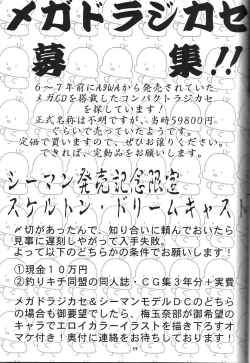 メガドラジカセ
募 集!!
6〜7年前にAIWAから発売されていた
メガCDを搭載したコンパクトラジカセ
を探しています!
正式名称は不明ですが、当時59800円
ぐらいで売っていたようです。
定価で買いますので、ぜひお譲りください。
できれば、完動品をお願いします。
シーマン発売記念限定
スケルトン・ドリームキャスト
〆切があったんで、知り合いに頼んでおいたら
見事に遅刻しやがって入手失敗。
よって以下のどちらかの条件でお願いします!
①現金10万円
②釣りキチ同盟の同人誌・CG集3年分+実費
メガドラジカセ&シーマンモデルDCのどちら
の場合も御要望でしたら、梅玉奈部が御希望の
キャラでエロイカラーイラストを描き下ろすオ
マケ付き!奥付に連絡をお待ちしております。